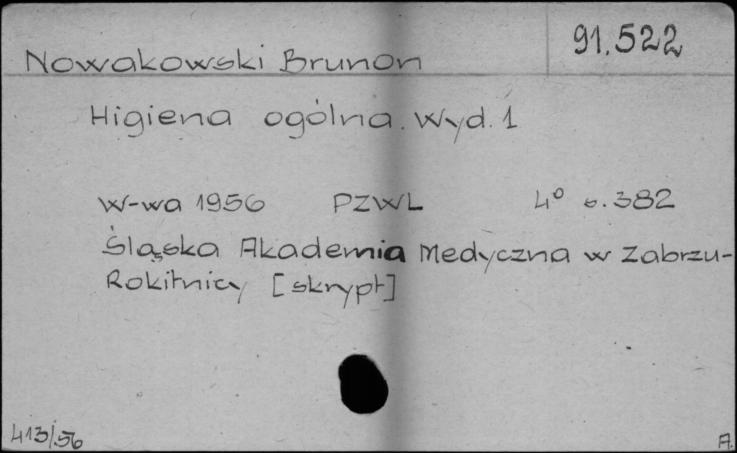 91.522
Nowakowski Brunon
Higiena ogólna. Wyd. 1
W-wa 1956 PZWL 4° s. 382
Śląska Akademia Medyczna w Zabrzu-
Rokitnicy [skrypt]
413/56
A.